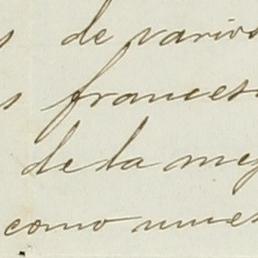 s de varios
s frances
de la mej
como nues